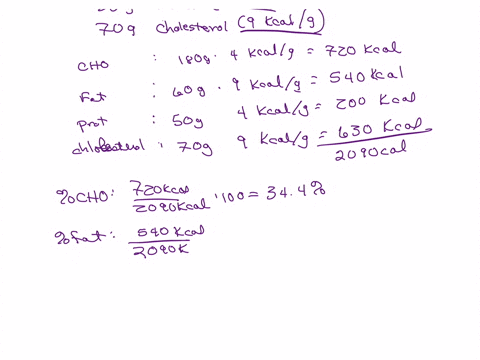 70g cholesterol (9 Kcal/g)
CHO : 180g · 4 Kcal/g = 720 Kcal
Fat : 60g · 9 Kcal/g = 540 Kcal
Prot : 50g 4 Kcal/g = 200 Kcal
chlolesterol : 70g 9 Kcal/g = 630 Kcal
2090cal
%CHO: 720Kcal / 2090Kcal · 100 = 34.4%
%Fat: 540 Kcal / 2090K